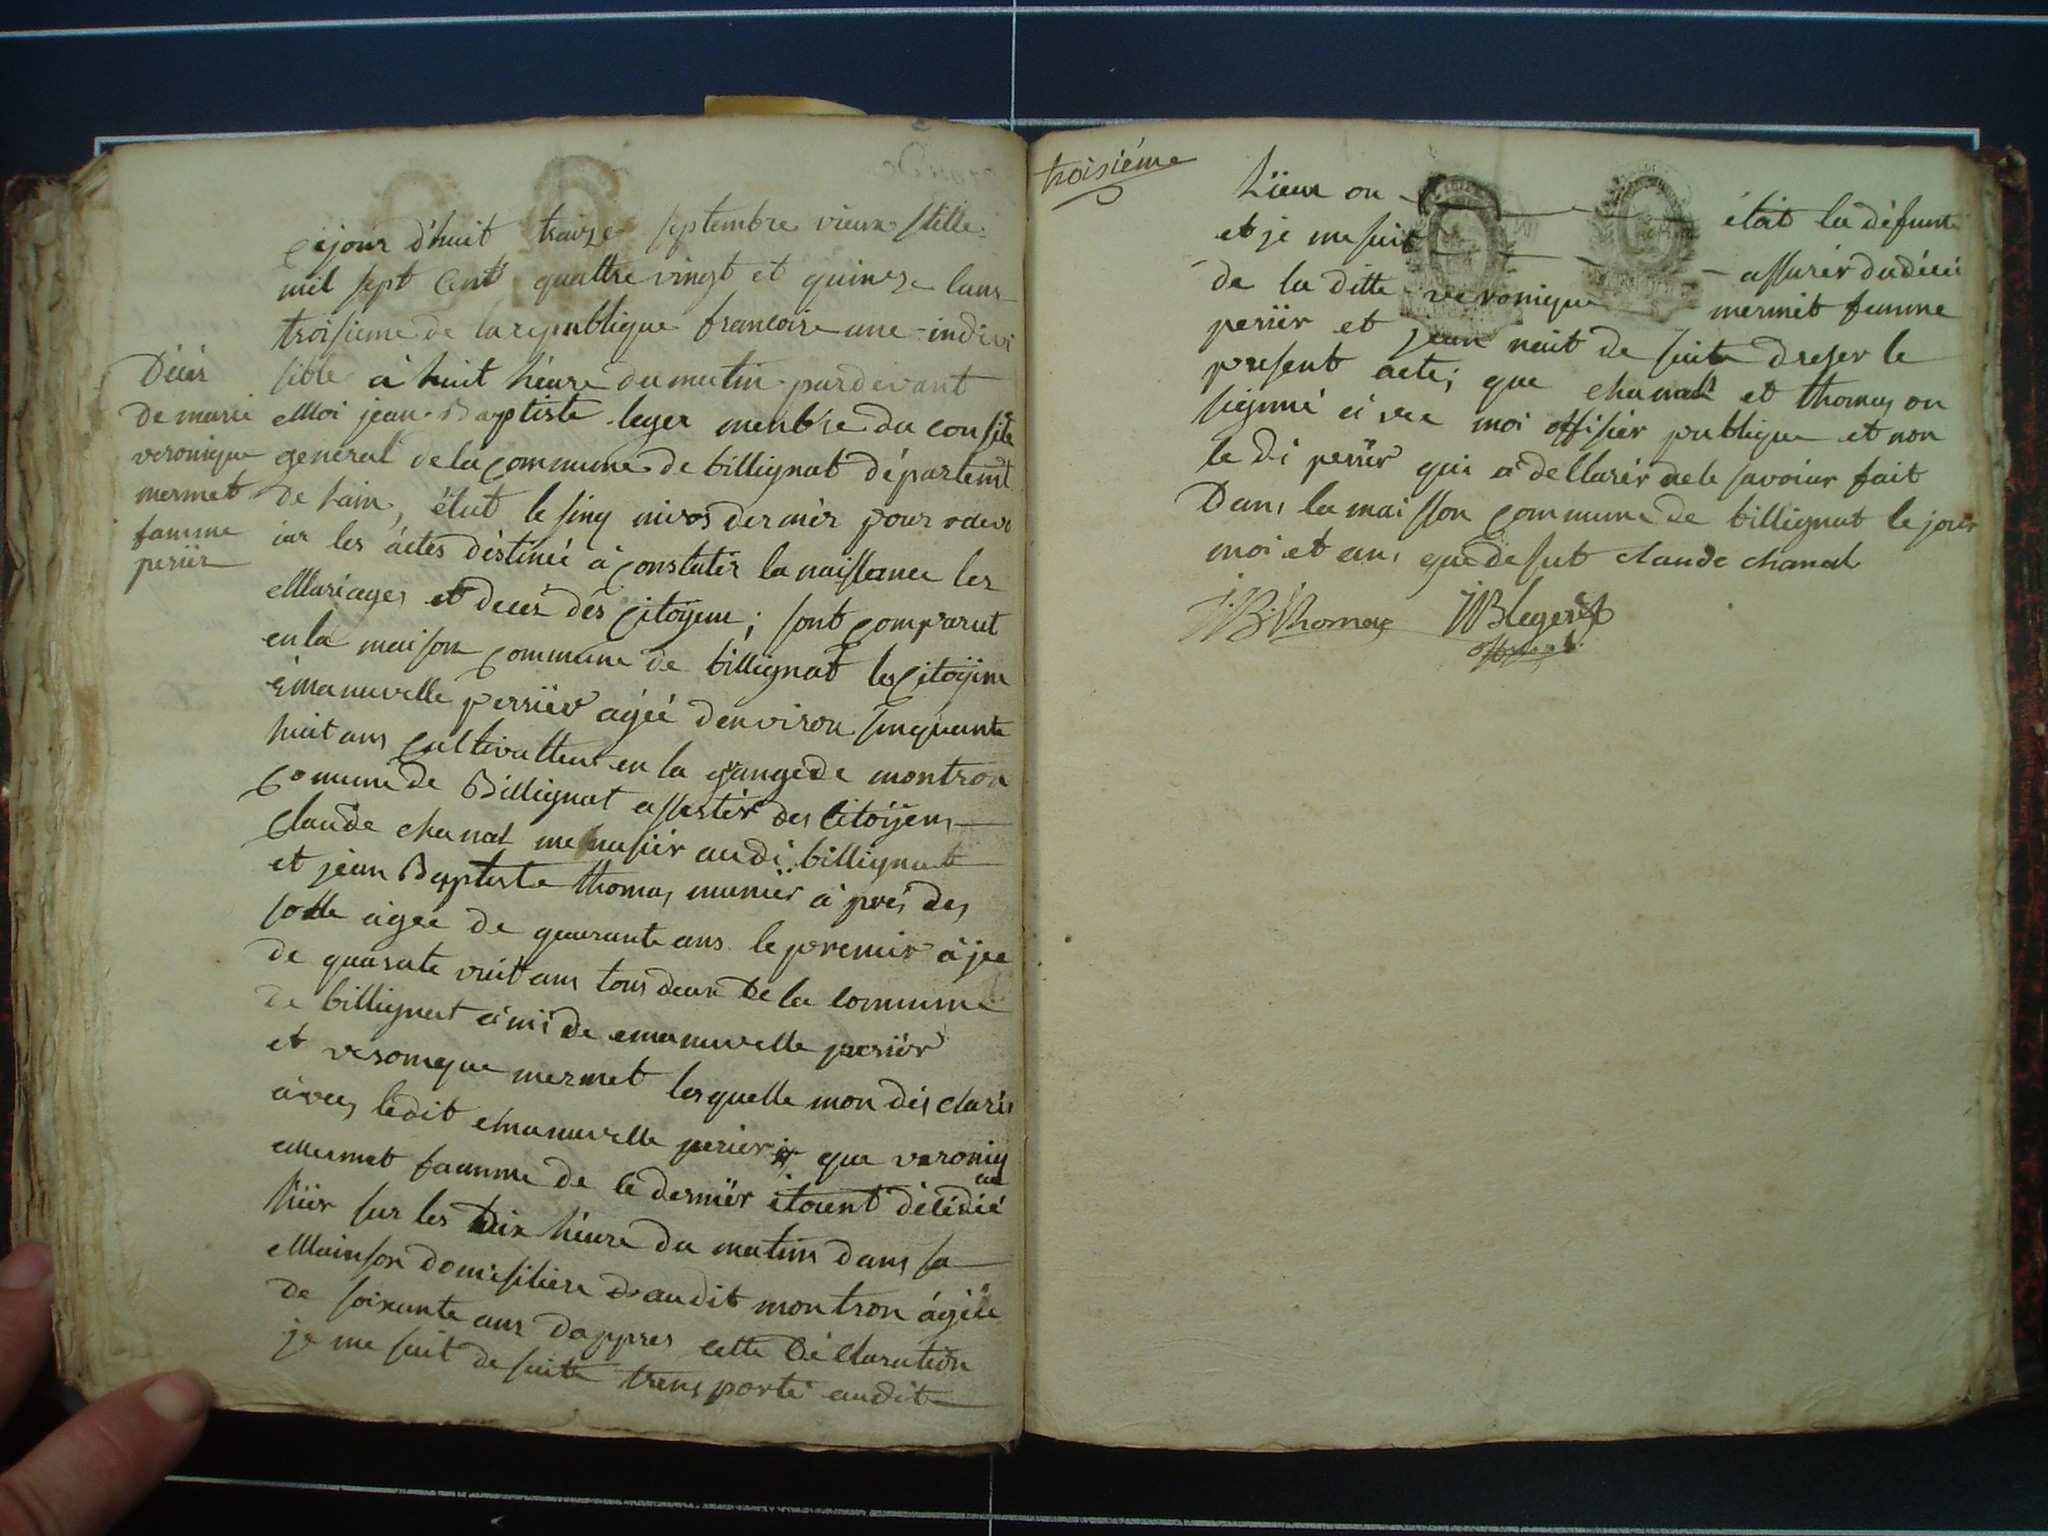 cejour d'huit traize septembre vieux stille
mil sept Cent quattre vingt et quinze lans
troisieme de la republique francoise une indivi
sible à huit heure du matin pardevant
Décès
de marie
veronique
mermet
famme
periér
Moi jean Baptiste leger menbre du conseile
general de la commune de billignat départemt
de lain, élut le sinq nivos dernier pour
les áctes déstinéé à constatér la naissance les
Mariages et decés des Citoyens; sont comparut
en la maison commune de billignat les Citoyine
émanuvelle perriér agéé denviron sinquante
huit ans cultivatteur en la grange de montron
comune de Billignat assistér des Citoÿens
Claude chanal menusiér audi billignat
et jean Baptiste thomas muniér à prés des
solle agée de quarante ans le premier àjee
de quarante vuit ans tous deux de la commune
de billignat ámi de emanuvelle periér
et veronique mermet lesquelle mon des clarés
avecs lédit emanuvelle perier que veroniq
mermet faamme de le derniér étoient décédéé
hiér sur les dix héure du matins dans sa
Mainson domisiliere daudit montron ágéé
de soixante ans dappres cette Déclaration
je me suit de suite trensporté audit
troisiéme
Lieux ou était la défunte
et je me suit assurér du décé
de la ditte veronique mermet femme
periér et jean nait de suite dreser le
present acte; que chanal et thomas on
signié avec moi offisiér publique et non
le di periér qui a déllarér nele savoiur fait
Dans la maisson commune de billignat le jour
moi et ans que désut claude chanal
J. B. Thomas JB Leger